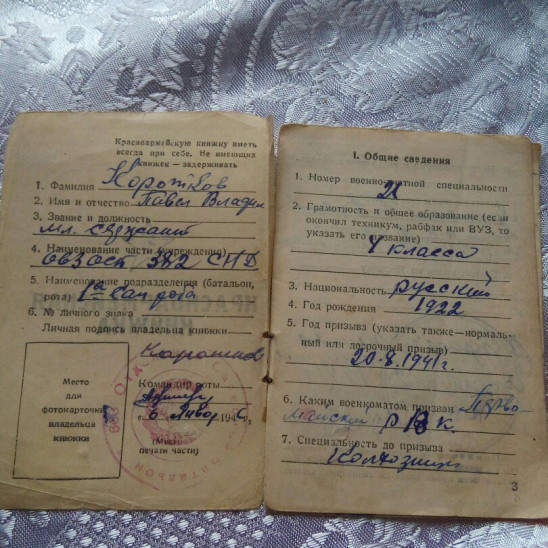 Красноармейскую книжку иметь
всегда при себе. Не имеющих
книжек — задерживать
1. Фамилия Коротков
2. Имя и отчество Павел
3. Звание и должность
мл. сержант
4. Наименование части (учреждения)
382
5. Наименование подразделения (батальон,
рота) 1я сан рота
6. № личного знака
Личная подпись владельца книжки
Место
для
фотокарточки
владельца
книжки
Командир роты
6 194
(Место
печати части)
I. Общие сведения
1. Номер военно-учетной специальности
2. Грамотность и общее образование (если
окончил техникум, рабфак или ВУЗ, то
указать его название)
4 класса
3. Национальность русский
4. Год рождения 1922
5. Год призыва (указать также—нормаль-
ный или досрочный призыв)
20.8.1941г.
6. Каким военкоматом призван Перво-
майским РВК.
7. Специальность до призыва
Колхозник
3